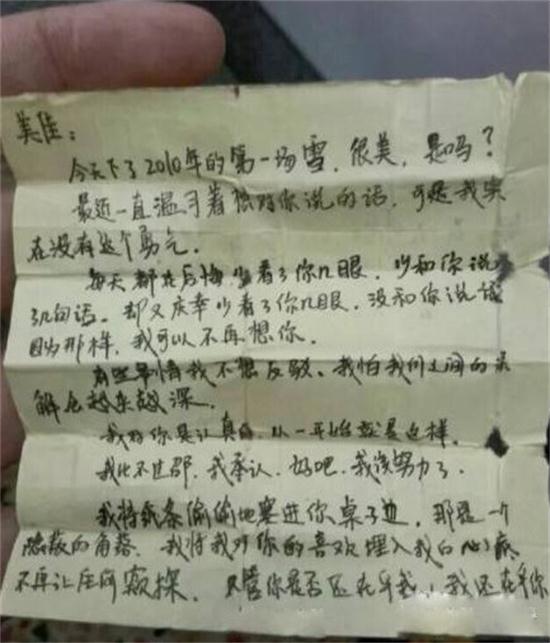 美佳：
今天下了2010年的第一场雪，很美，是吗？
最近一直温习着想对你说的话，可是我实
在没有这个勇气。
每天都在后悔，少看了你几眼，少和你说
了几句话。却又庆幸少看了你几眼，没和你说话
因为那样，我可以不再想你。
有些事情我不想反驳、我怕我们之间的误
解会越来越深。
我对你是认真的，从一开始就是这样。
我比不过邵，我承认，好吧，我该努力了。
我将纸条偷偷地塞进你桌子边，那是一个
隐蔽的角落，我将我对你的喜欢埋入我的心底
不再让任何窥探。不管你是否还在乎我，我还在乎你